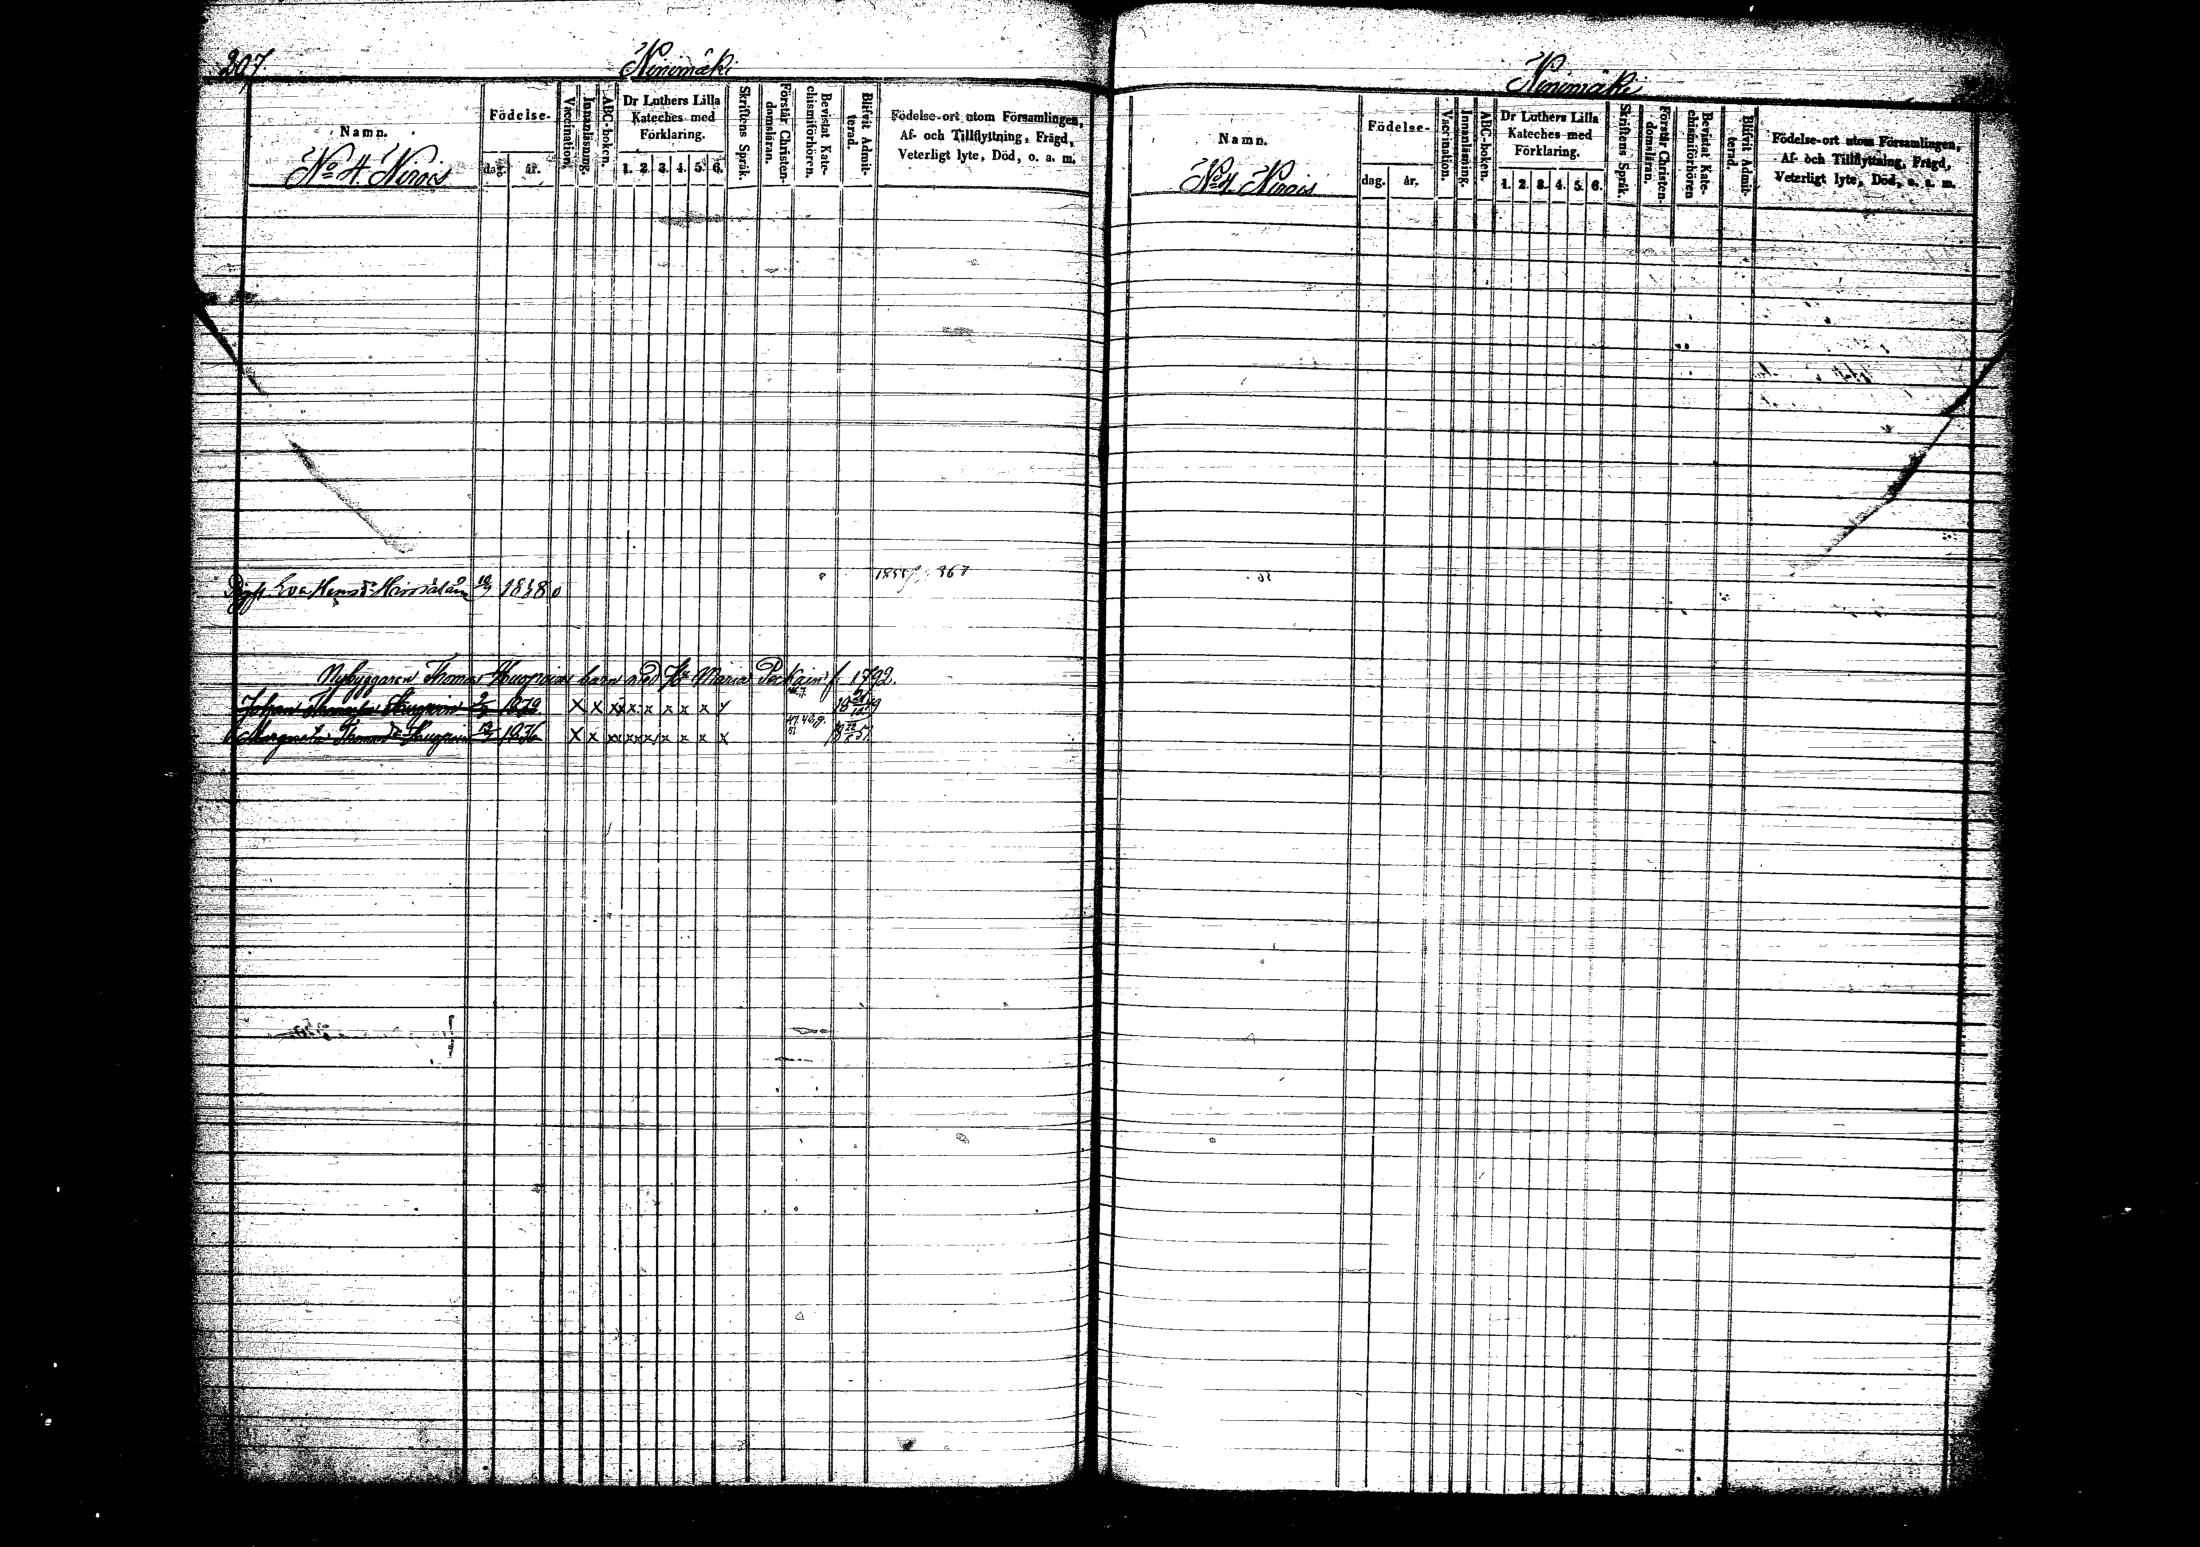 207. Ninimäki
Namn.
No 4. Nirois
Födelse-
dag. år.
Vaccination.
Innanläsning.
ABC-boken.
Dr Luthers Lilla Kateches med Förklaring.
1. 2. 3. 4. 5. 6.
Skriftens Språk.
Förstår Christendomsläran.
Bevistat Katechismiförhören.
Blifvit Admitterad.
Födelse-ort utom Församlingen,
Af- och Tillflyttning, Frägd,
Veterligt lyte, Död, o. a. m.
Eva Hensdr 1838
Nybyggaren Thomas barn med H: Maria f. 1792.
Johan 1829 X X x x x x x x
Margareta Thomasdr 1836 X x x x x x x x
Ninimäki
Namn.
No 4. Nirois
Födelse-
dag. år.
Vaccination.
Innanläsning.
ABC-boken.
Dr Luthers Lilla Kateches med Förklaring.
1. 2. 3. 4. 5. 6.
Skriftens Språk.
Förstår Christendomsläran.
Bevistat Katechismiförhören
Blifvit Admitterad.
Födelse-ort utom Församlingen,
Af- och Tillflyttning, Frägd,
Veterligt lyte, Död, o. a. m.